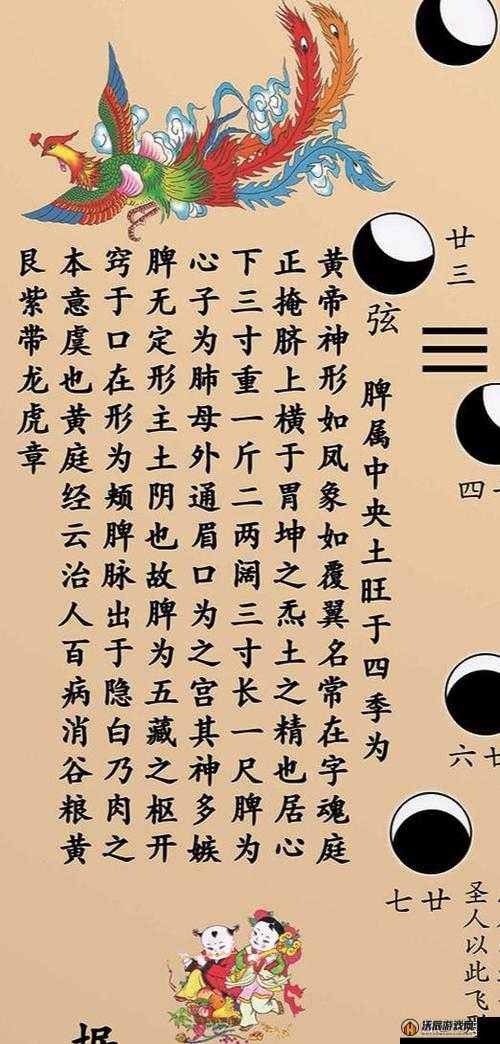 廿三
弦
四
廿六
廿七
圣人以此飞
脾属中央土旺于四季为
黄帝神形如凤象如覆翼名常在字魂庭
正掩脐上横于胃坤之炁土之精也居心
下三寸重一斤二两阔三寸长一尺脾为
心子为肺母外通眉口为之宫其神多嫉
脾无定形主土阴也故脾为五藏之枢开
窍于口在形为颊脾脉出于隐白乃肉之
本意虞也黄庭经云治人百病消谷粮黄
艮紫带龙虎章